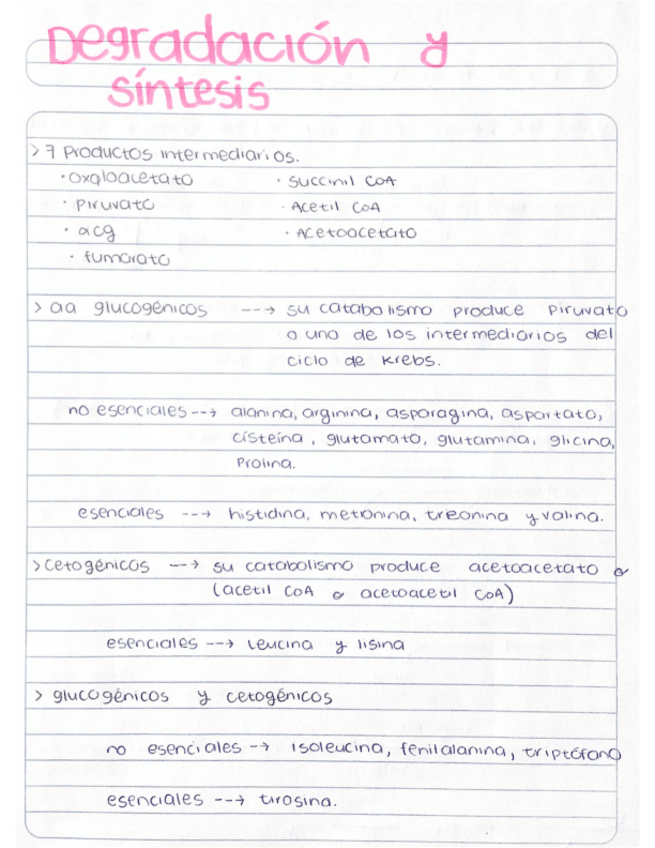 Degradación y
síntesis
> 7 Productos intermediarios.
• oxaloacetato
• succinil CoA
• piruvato
• Acetil CoA
• αcg
• Acetoacetato
• fumarato
> aa glucogénicos ---> su catabolismo produce piruvato
o uno de los intermediarios del
ciclo de krebs.
no esenciales --> alanina, arginina, asparagina, aspartato,
cisteína, glutamato, glutamina, glicina,
Prolina.
esenciales ---> histidina, metionina, treonina y valina.
> Cetogénicos --> su catabolismo produce acetoacetato o
(acetil CoA o acetoacetil CoA)
esenciales --> Leucina y lisina
> glucogénicos y cetogénicos
no esenciales --> isoleucina, fenilalanina, triptófano
esenciales ---> tirosina.